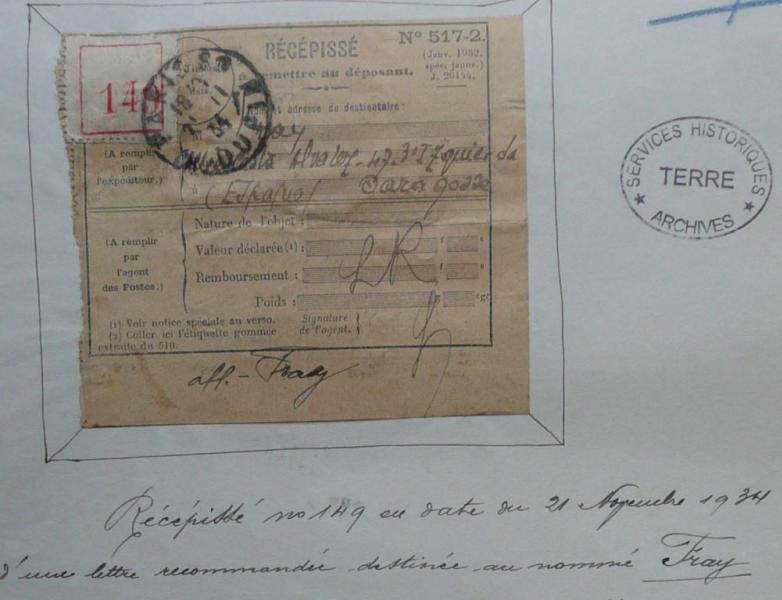 149
RÉCÉPISSÉ
à remettre au déposant.
Nº 517-2.
(Janv. 1932,
spéc. jaune.)
J. 20144.
PARIS
18
21 11
34
DUPIN
Nom et adresse du destinataire :
Fray
Alvarez - 47 - 3º Izquierda
(España) Saragosse
(A remplir
par
l'expéditeur.)
à
Nature de l'objet :
(A remplir
par
l'agent
des Postes.)
Valeur déclarée (1) : f c
Remboursement : f c
LR
Poids : g cgr
(1) Voir notice spéciale au verso.
(2) Coller ici l'étiquette gommée
extraite du 510.
Signature
de l'agent.
aff. - Fray
SERVICES HISTORIQUES
TERRE
ARCHIVES
Récépissé no 149 en date du 21 Novembre 1934
d'une lettre recommandée destinée au nommé Fray